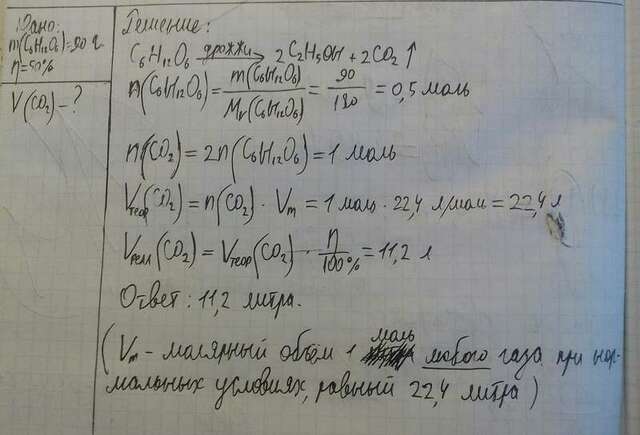 Дано:
m(C₆H₁₂O₆)=90 г
η=50%
V(CO₂)-?
Решение:
C₆H₁₂O₆ —дрожжи→ 2C₂H₅OH + 2CO₂↑
n(C₆H₁₂O₆) = m(C₆H₁₂O₆)/Mr(C₆H₁₂O₆) = 90/180 = 0,5 моль
n(CO₂) = 2n(C₆H₁₂O₆) = 1 моль
Vтеор(CO₂) = n(CO₂) · Vm = 1 моль · 22,4 л/моль = 22,4 л
Vреал(CO₂) = Vтеор(CO₂) · η/100% = 11,2 л
Ответ: 11,2 литра.
(Vm - молярный объём 1 моль любого газа при нор-
мальных условиях, равный 22,4 литра)